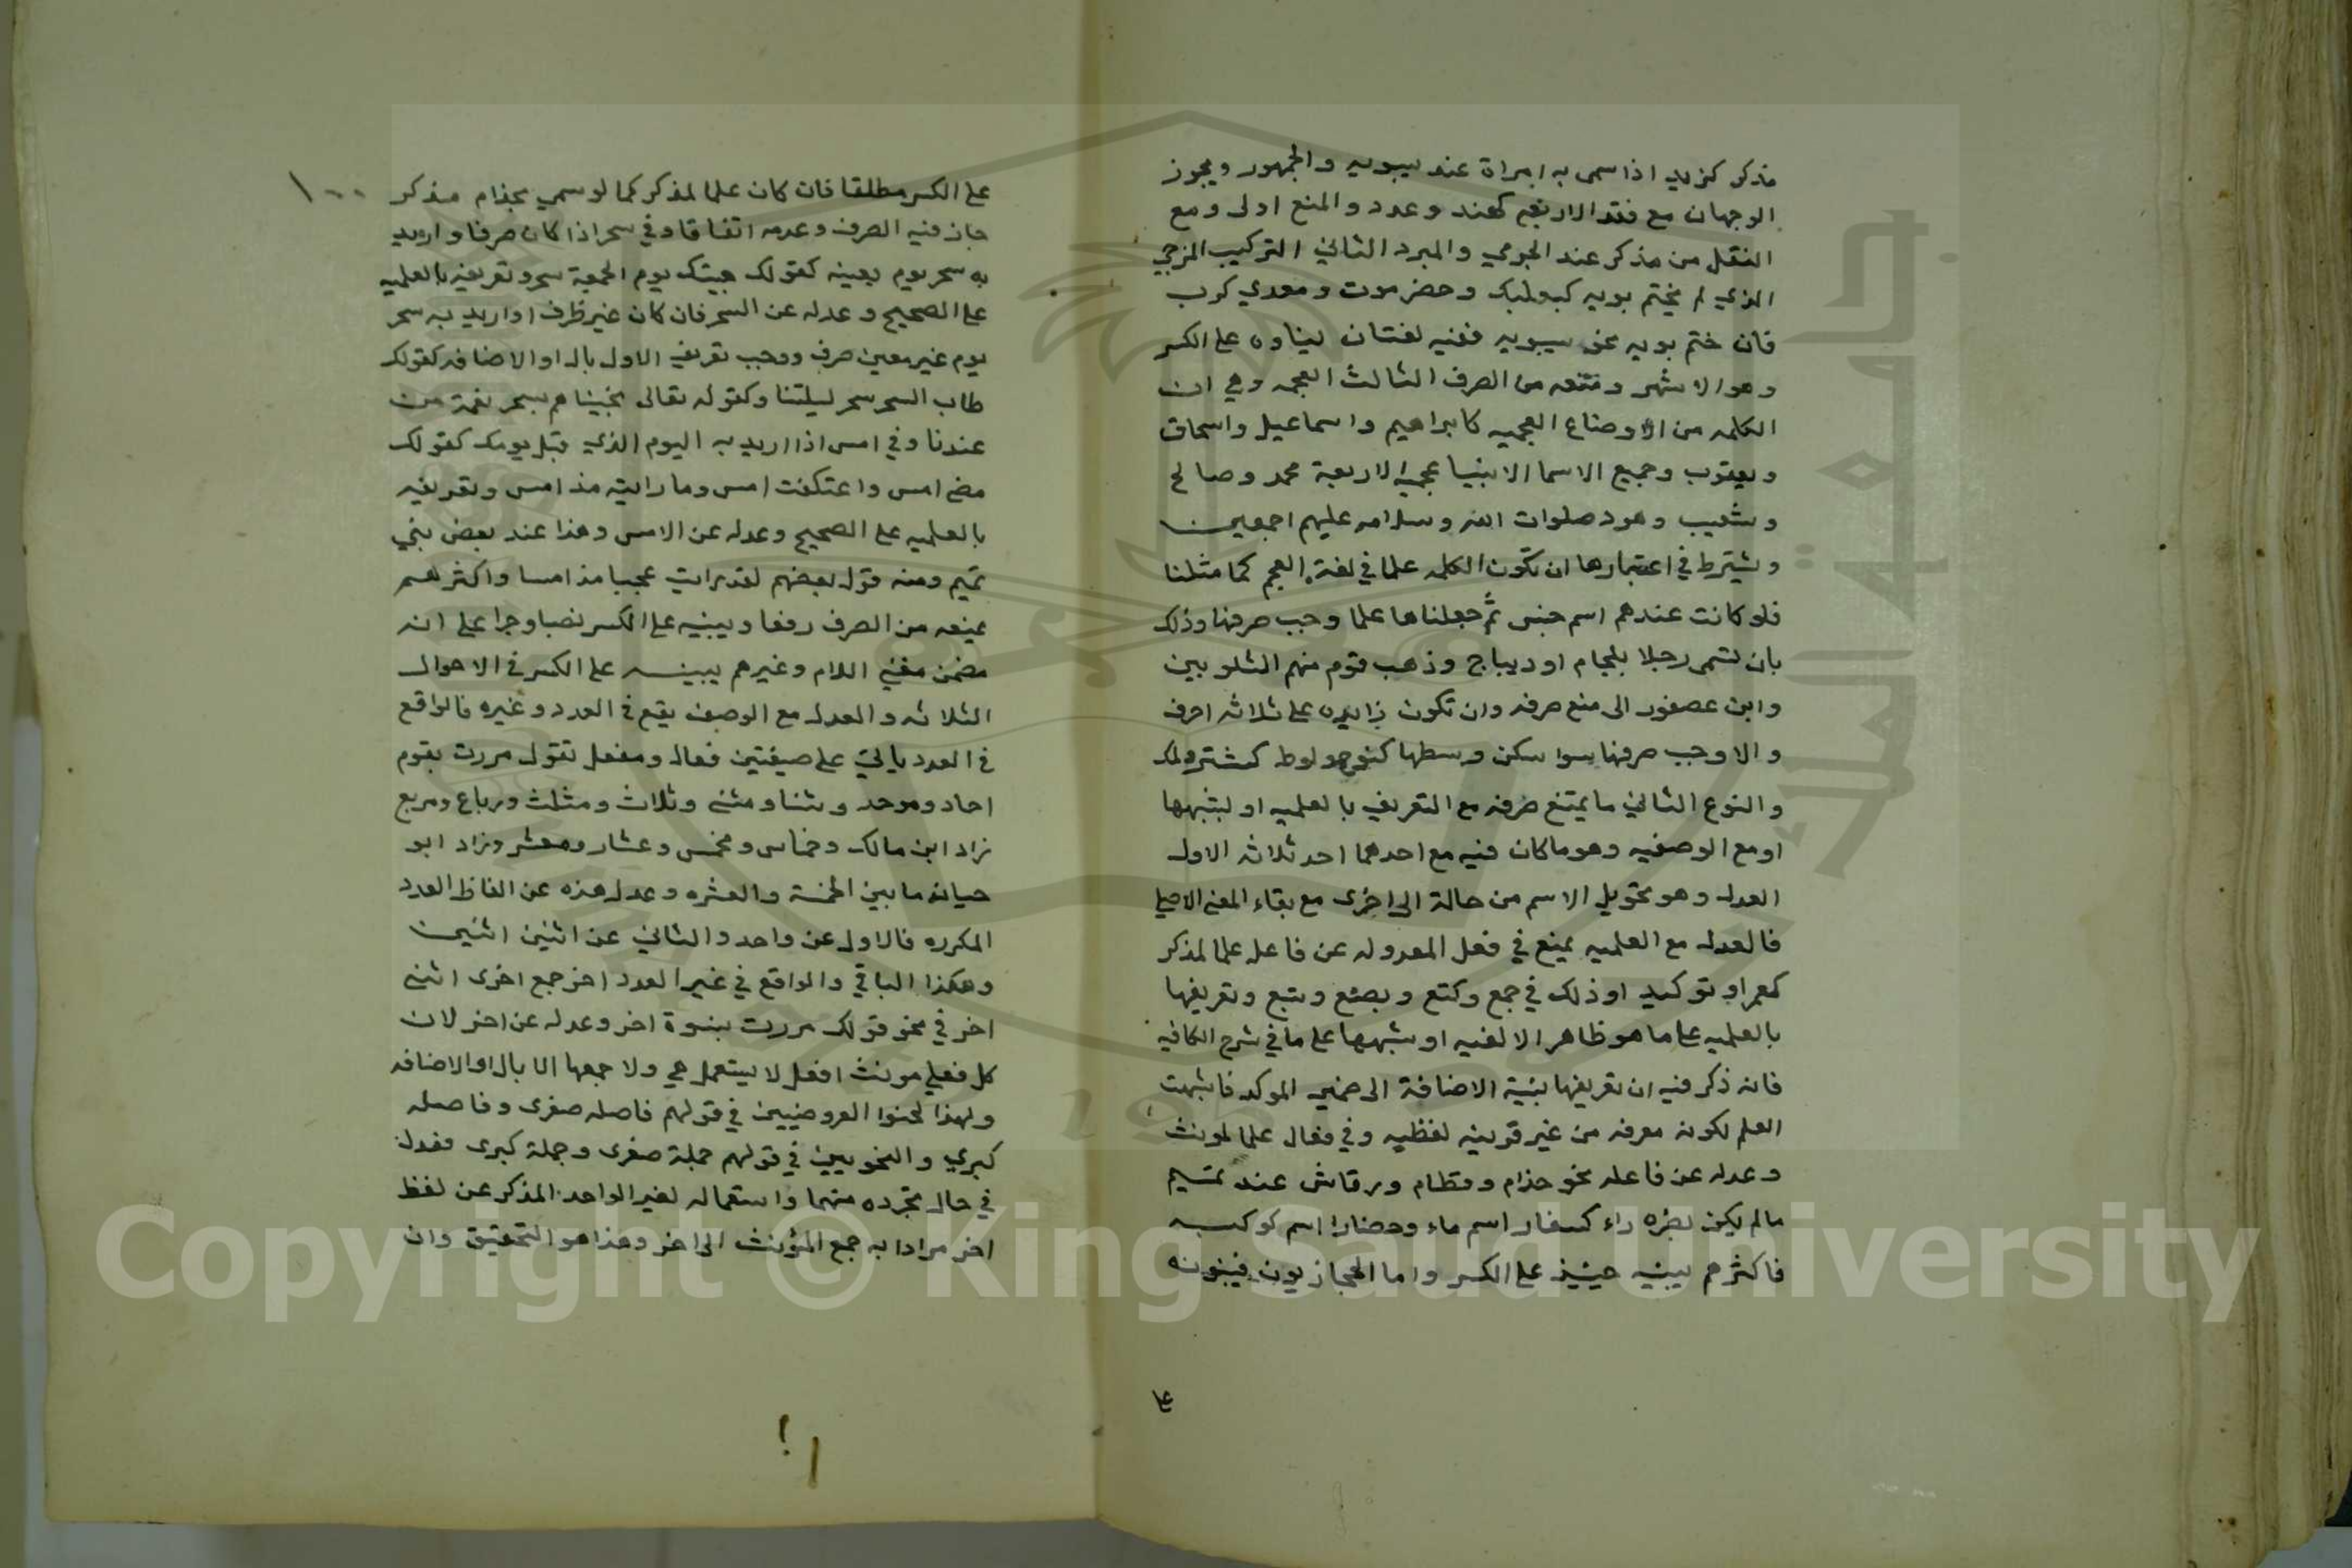 مذكر كزيد اذا سمى به امراة عند سيبويه والجمهور ويجوز
الوجهان مع فقد الاربعه كهند وعدد والمنع اولى ومع
النقل من مذكر عند الجرمي والمبرد الثاني التركيب المزجي
الذي لم يختم بويه كبعلبك وحضرموت ومعدي كرب
فان ختم بويه نحو سيبويه ففيه لغتان بناوه على الكسر
وهو الاشهر ومنعه من الصرف الثالث العجمه وهي ان
الكلمه من الاوضاع العجميه كابراهيم واسماعيل واسحاق
ويعقوب وجميع الاسما الانبيا عجميه الاربعة محمد وصالح
وشعيب وهود صلوات الله وسلامه عليهم اجمعين
ويشترط في اعتبارها ان تكون الكلمه علما في لغة العجم كما مثلنا
فلو كانت عندهم اسم جنس ثم جعلناها علما وجب صرفها وذلك
بان تسمى رجلا بلجام او ديباج وذهب قوم منهم الشلوبين
وابن عصفور الى منع صرفه وان تكون زايده على ثلاثه احرف
والا وجب صرفها سوا سكن وسطها كنوح ولوط كشتر ولمك
والنوع الثاني ما يمتنع صرفه مع التعريف بالعلميه او لبشبهها
او مع الوصفيه وهو ما كان فيه مع احدهما احد ثلاثه الاول
العدل وهو تحويل الاسم من حالة الى اخرى مع بقاء المعنى الاصلي
فالعدل مع العلميه يمنع في فعل المعدوله عن فاعل علما لمذكر
كعمر او توكيد اوذلك في جمع وكتع وبصع وبتع وتعريفها
بالعلميه على ما هو ظاهر الالفيه او بشبهها على ما في شرح الكافيه
فانه ذكر فيه ان تعريفها بنية الاضافة الى ضمير الموكد فاشبهت
العلم لكونه معرفه من غير قرينه لفظيه وفي فعال علما لمونث
وعدله عن فاعله نحو حذام وقطام ورقاش عند تميم
مالم يكن اخره راء كسفار اسم ماء وحضار اسم كوكب
فاكثرهم يبنيه حينيذ على الكسر واما الحجازيون فيبنونه
على
١٠٠
على الكسر مطلقا فان كان علما لمذكر كما لو سمي بحذام مذكر
جاز فيه الصرف وعدمه اتفاقا وفي سحر اذا كان صرفا واريد
به سحر يوم بعينه كقولك جيتك يوم الجمعة سحر وتعريفه بالعلميه
على الصحيح وعدله عن السحر فان كان غير ظرف او اريد به سحر
يوم غير معين صرف ووجب تعريف الاول بال او الاضافه كقولك
طاب السحر سحر ليلتنا وكقوله تعالى نجيناهم بسحر نعمة من
عندنا وفي امس اذا اريد به اليوم الذي قبل يومك كقولك
مضى امس واعتكفت امس وما رايته مذ امس وتعريفه
بالعلميه على الصحيح وعدله عن الامس وهذا عند بعض بني
تميم ومنه قول بعضهم لقد رايت عجبا مذ امسا واكثرهم
يمنعه من الصرف رفعا ويبنيه على الكسر نصبا وجرا على انه
مضمن معنى اللام وغيرهم يبنيه على الكسر في الاحوال
الثلاثه والعدل مع الوصف يقع في العدد وغيره فالواقع
في العدد ياتي على صيغتين فعال ومفعل تقول مررت بقوم
احاد وموحد وثنا ومثنى وثلاث ومثلث ورباع ومربع
زاد ابن مالك وخماس ومخمس وعشار ومعشر وزاد ابو
حيان ما بين الخمسة والعشره وعدل هذه عن الفاظ العدد
المكرره فالاول عن واحد والثاني عن اثنين اثنين
وهكذا الباقي والواقع في غير العدد اخر جمع اخرى انثى
اخر في نحو قولك مررت بنسوة اخر وعدله عن اخر لان
كل فعلى مونث افعل لا يستعمل هي ولا جمعها الا بال او الاضافه
ولهذا لحنوا العروضيين في قولهم فاصله صغرى وفاصله
كبرى والنحويين في قولهم جملة صغرى وجملة كبرى فعدل
في حال تجرده منهما واستعماله لغير الواحد المذكر عن لفظ
اخر مرادا به جمع المؤنث الى اخر وهذا هو التحقيق وان
Copyright © King Saud University